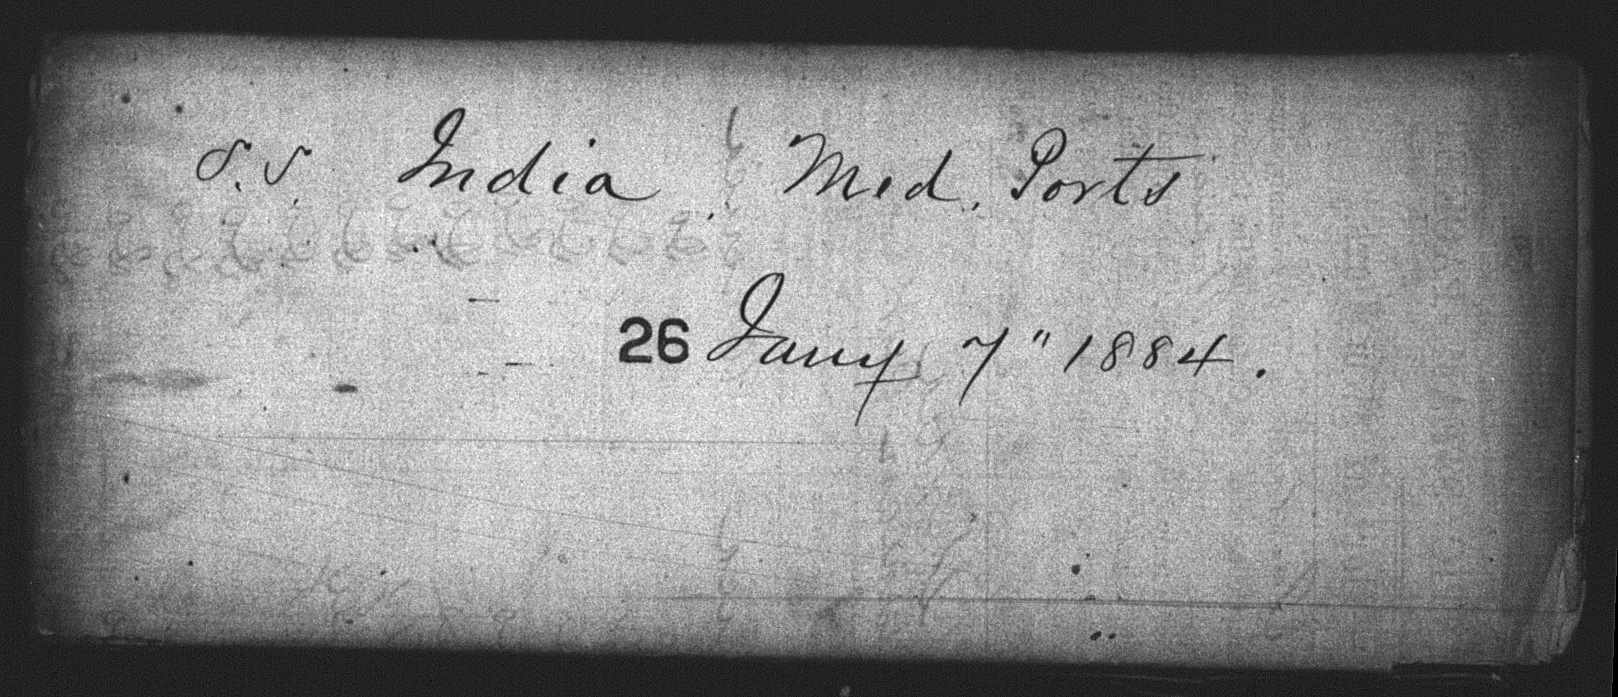 S.S. India Med. Ports
26 Jany 7" 1884.